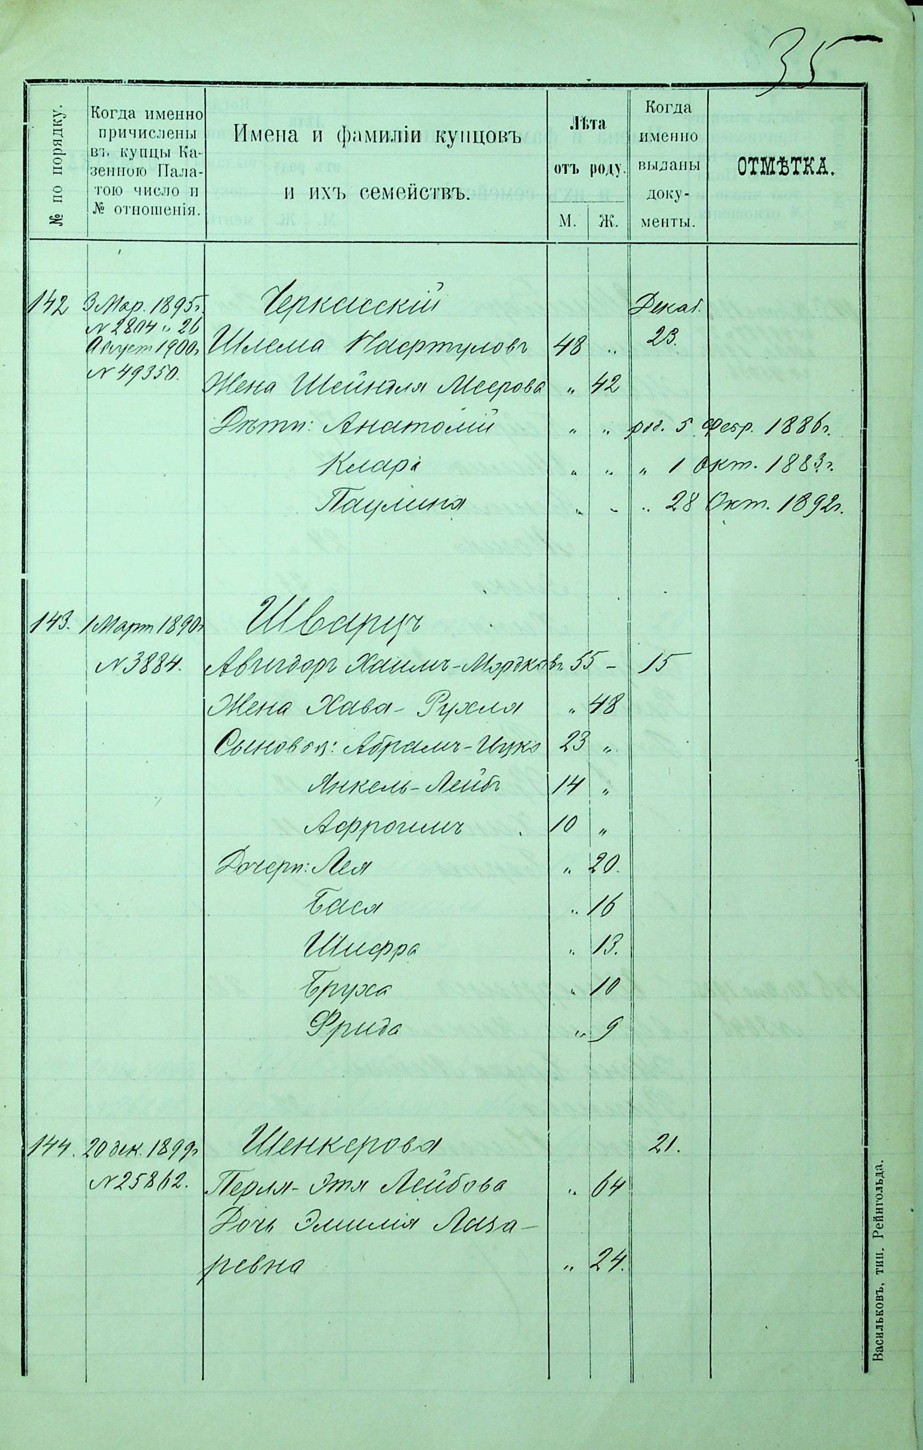 35
№ по порядку.
Когда именно
причислены
въ купцы Ка-
зенною Пала-
тою число и
№ отношенія.
Имена и фамиліи купцовъ
и ихъ семействъ.
Лѣта
отъ роду.
М. Ж.
Когда
именно
выданы
доку-
менты.
ОТМѢТКА.
142 3 Мар. 1895 г. Черкасскій Декаб.
N 2804 и 26
Август 1900 г. Шлема 48 „ 23.
N 49350.
Жена Шейндля Меерова „ 42
Дѣти: Анатолій „ „ род. 5 Февр. 1886 г.
Клара „ „ „ 1 Окт. 1883 г.
Паулина „ „ „ 28 Окт. 1892 г.
143. 1 Март 1890 г. Шварцъ
N 3884. Авигдоръ Хаимъ-Мордковъ 55 – 15
Жена Хава-Рухля „ 48
Сыновья: Абрамъ-Ицко 23 „
Янкель-Лейбъ 14 „
Афроимъ 10 „
Дочери: Лея „ 20.
Бася „ 16
Шифра „ 13.
Бруха „ 10
Фрида „ 9
144. 20 дек. 1899 г. Шенкерова 21.
N 25862. Перля-Этя Лейбова „ 64
Дочь Эмилія Лаза-
ревна „ 24.
Васильковъ, тип. Рейнгольда.